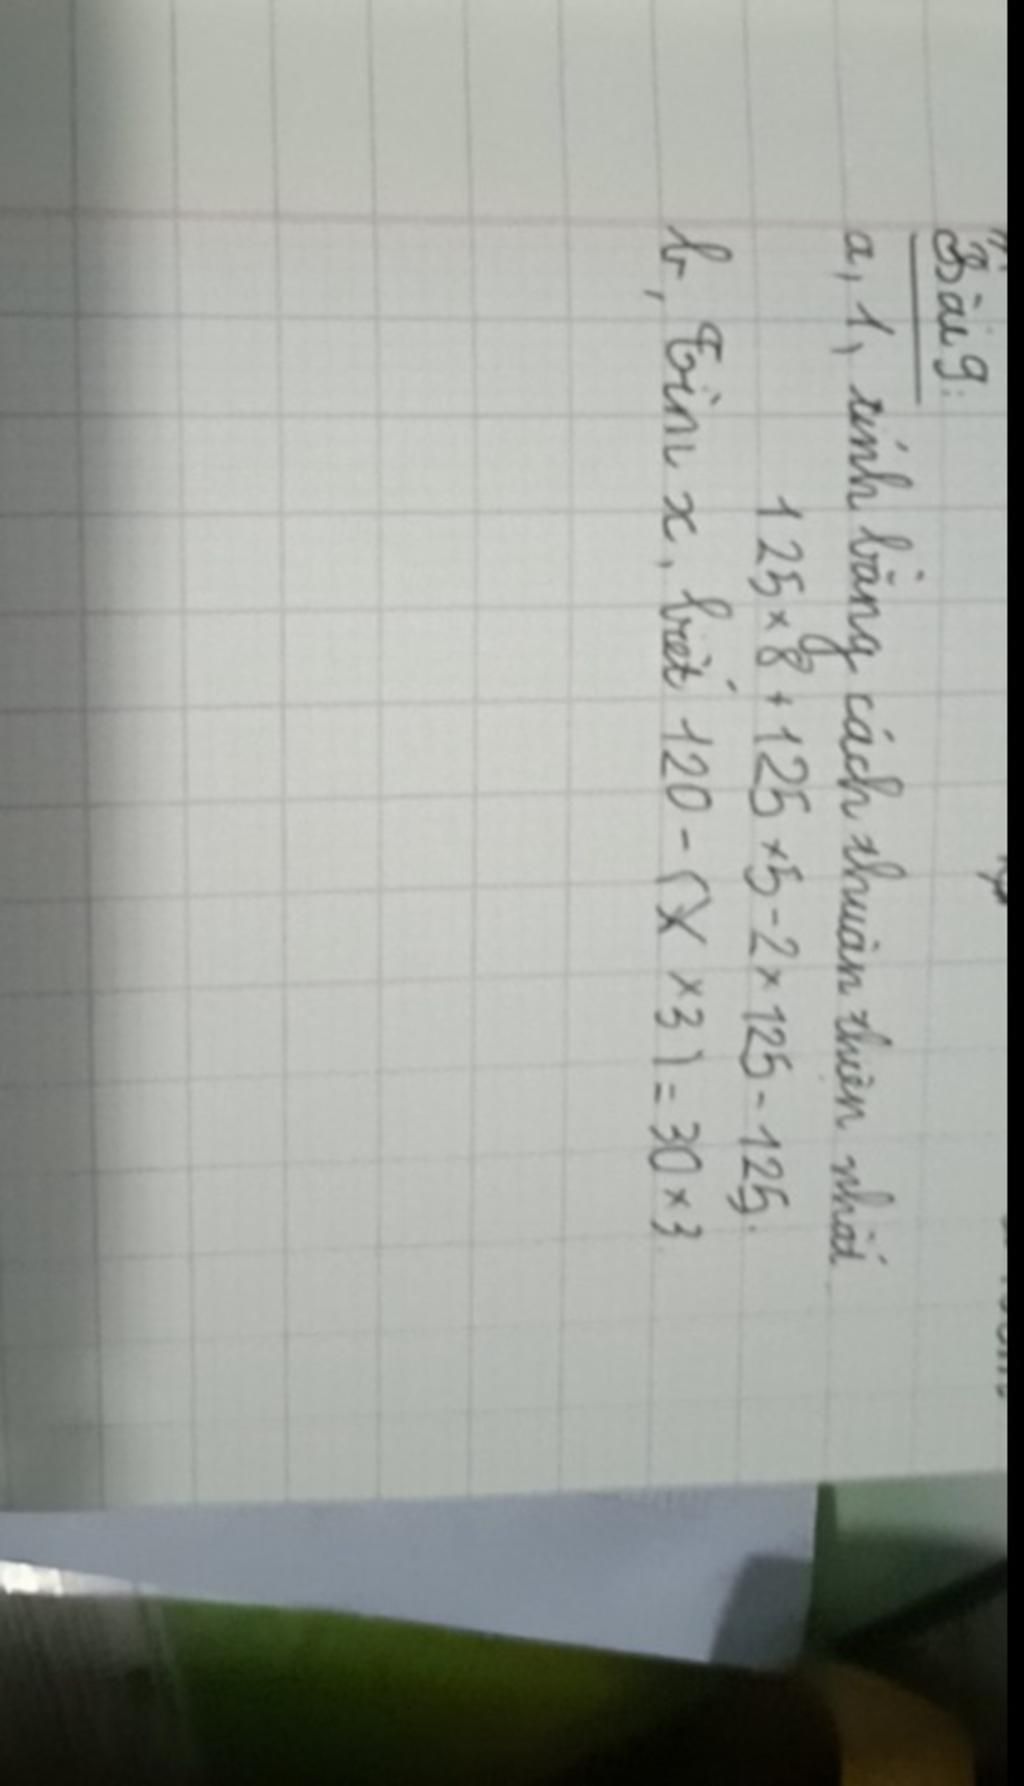 Bài 9:
a, 1, tính bằng cách thuận thiện nhất
125 × 8 + 125 × 5 - 2 × 125 - 125.
b, Tìm x, biết 120 - (X × 3) = 30 × 3